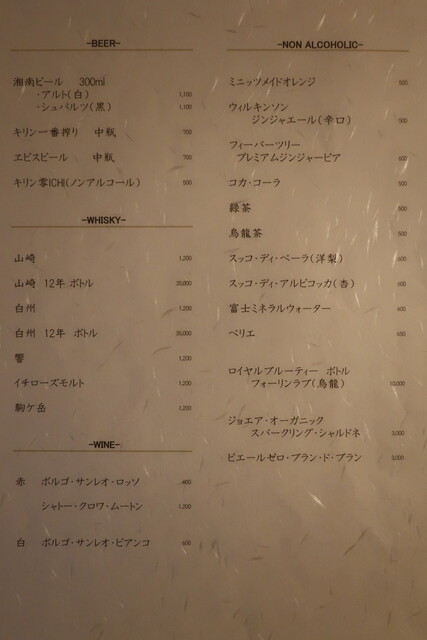 -BEER-
湘南ビール 300ml
・アルト(白) 1,100
・シュバルツ(黒) 1,100
キリン一番搾り 中瓶 700
ヱビスビール 中瓶 700
キリン零ICHI(ノンアルコール) 500
-WHISKY-
山崎 1,200
山崎 12年 ボトル
白州 1,200
白州 12年 ボトル
響 1,200
イチローズモルト 1,200
駒ケ岳 1,200
-WINE-
赤 ボルゴ・サンレオ・ロッソ
シャトー・クロワ・ムートン 1,200
白 ボルゴ・サンレオ・ビアンコ 600
-NON ALCOHOLIC-
ミニッツメイドオレンジ 500
ウィルキンソン
ジンジャエール(辛口) 500
フィーバーツリー
プレミアムジンジャービア 600
コカ・コーラ 500
緑茶 500
烏龍茶 500
スッコ・ディ・ペーラ(洋梨) 600
スッコ・ディ・アルビコッカ(杏) 600
富士ミネラルウォーター 600
ペリエ
ロイヤルブルーティー ボトル
フォーリンラブ(烏龍) 10,000
ジョエア・オーガニック
スパークリング・シャルドネ 3,000
ピエールゼロ・ブラン・ド・ブラン 3,000